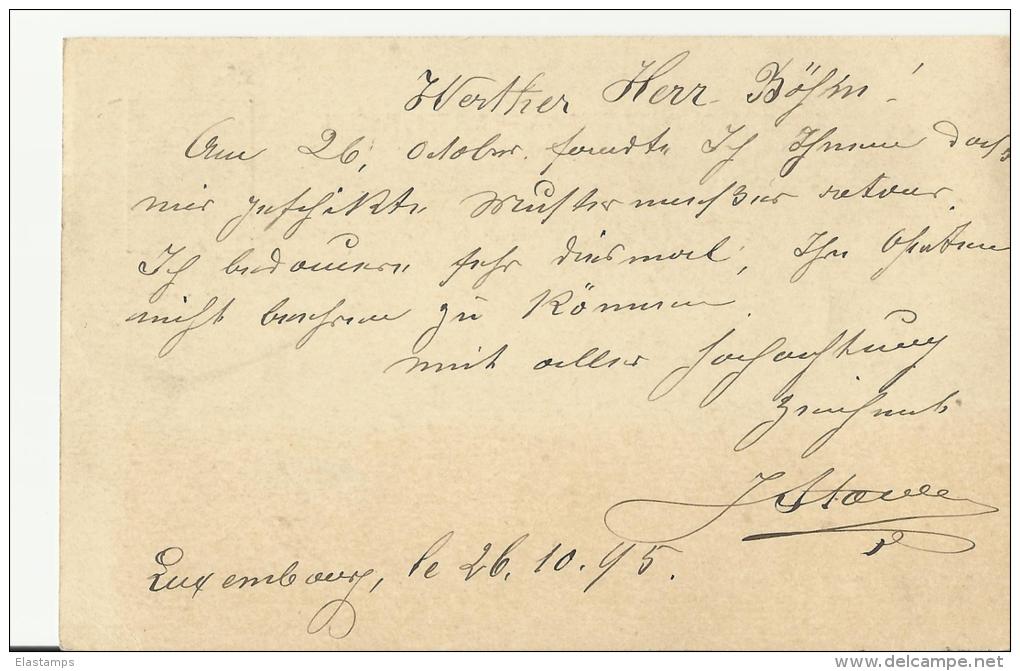 Werther Herr Böhm!
Am 26, October sandte Ich Ihnen das
mir geschikte Muster messer retour.
Ich bedauere sehr diesmal, Ihr
nicht zu können
mit aller Hochachtung
zeichnet
J
Luxembourg, le 26. 10. 95.
Elastamps
delcampe.net